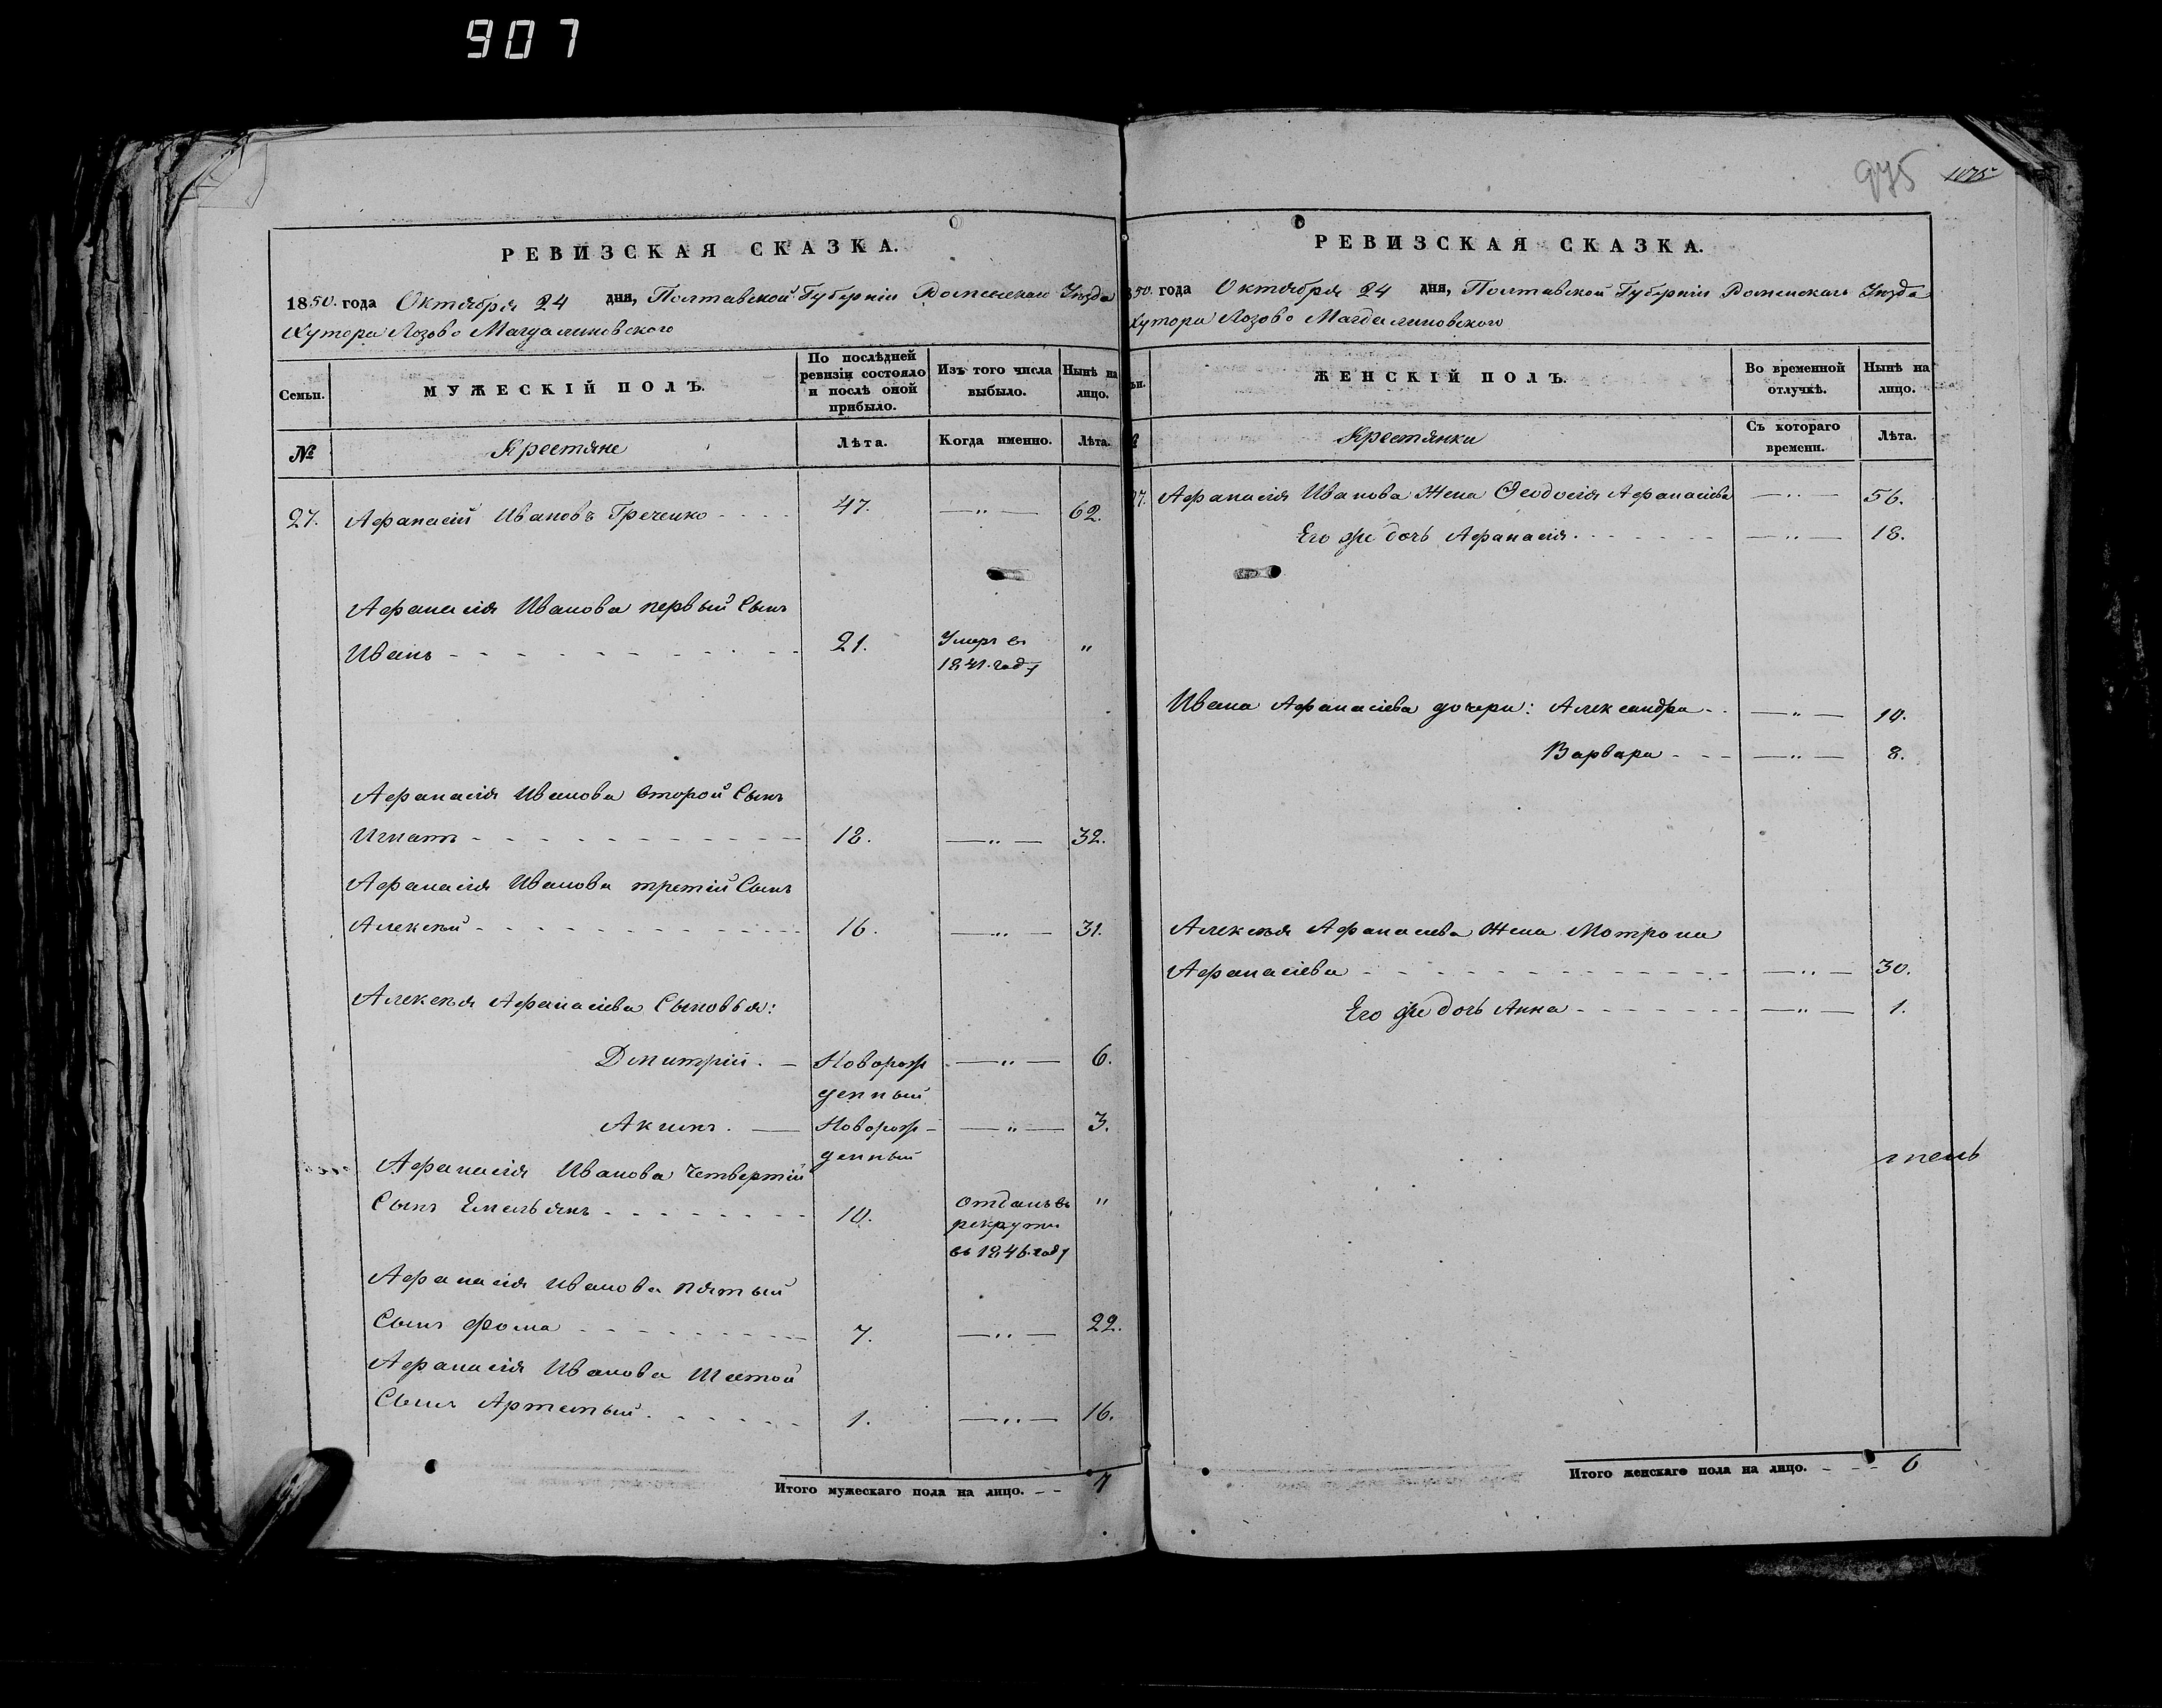 907
975 1075
РЕВИЗСКАЯ СКАЗКА.
1850. года Октября 24 дня, Полтавской Губерніи Роменскаго Уѣзда
Хутора Лозово Магдалиновского
Семьи.
МУЖЕСКІЙ ПОЛЪ.
По послѣдней ревизіи состояло и послѣ оной прибыло.
Изъ того числа выбыло.
Нынѣ на лицо.
№
Крестяне
Лѣта.
Когда именно.
Лѣта.
27. Афанасій Ивановъ Греченко - - - - 47. —"— 62.
Афанасія Иванова первый Сынъ
Иванъ - - - - - - - - 21. Умеръ въ 1841. году "
Афанасія Иванова второй Сынъ
Игнатъ - - - - - - - - 18. —"— 32.
Афанасія Иванова третій Сынъ
Алексѣй - - - - - - - - 16. —"— 31.
Алексѣя Афанасіева Сыновья:
Дмитрій. — Новорож
денный —"— 6.
Акимъ. — Новорож-
денный —"— 3.
Афанасія Иванова Четвертій
Сынъ Емельянъ - - - - - - - 10. отданъ въ
рекруты
въ 1846. году "
Афанасія Иванова Пятый
Сынъ Фома - - - - - - - - 7. —"— 22.
Афанасія Иванова Шестой
Сынъ Артемый. - - - - - - 1. —"— 16.
Итого мужескаго пола на лицо. - - 7
РЕВИЗСКАЯ СКАЗКА.
850. года Октября 24 дня, Полтавской Губерніи Роменскаго Уѣзда
Хутора Лозово Магдалиновского
ьи.
ЖЕНСКІЙ ПОЛЪ.
Во временной отлучкѣ.
Нынѣ на лицо.
Крестянки
Съ котораго времени.
Лѣта.
27. Афанасія Иванова Жена Феодосія Афанасіева —"— 56.
Его же дочь Афанасія. - - - - - - —"— 18.
Ивана Афанасіева дочери: Александра - - —"— 10.
Варвара - - - —"— 8.
Алексѣя Афанасіева Жена Мотрона
Афанасіева - - - - - - - - - - —"— 30.
Его же дочь Анна - - - - - - - —"— 1.
Итого женскаго пола на лицо. - - - 6